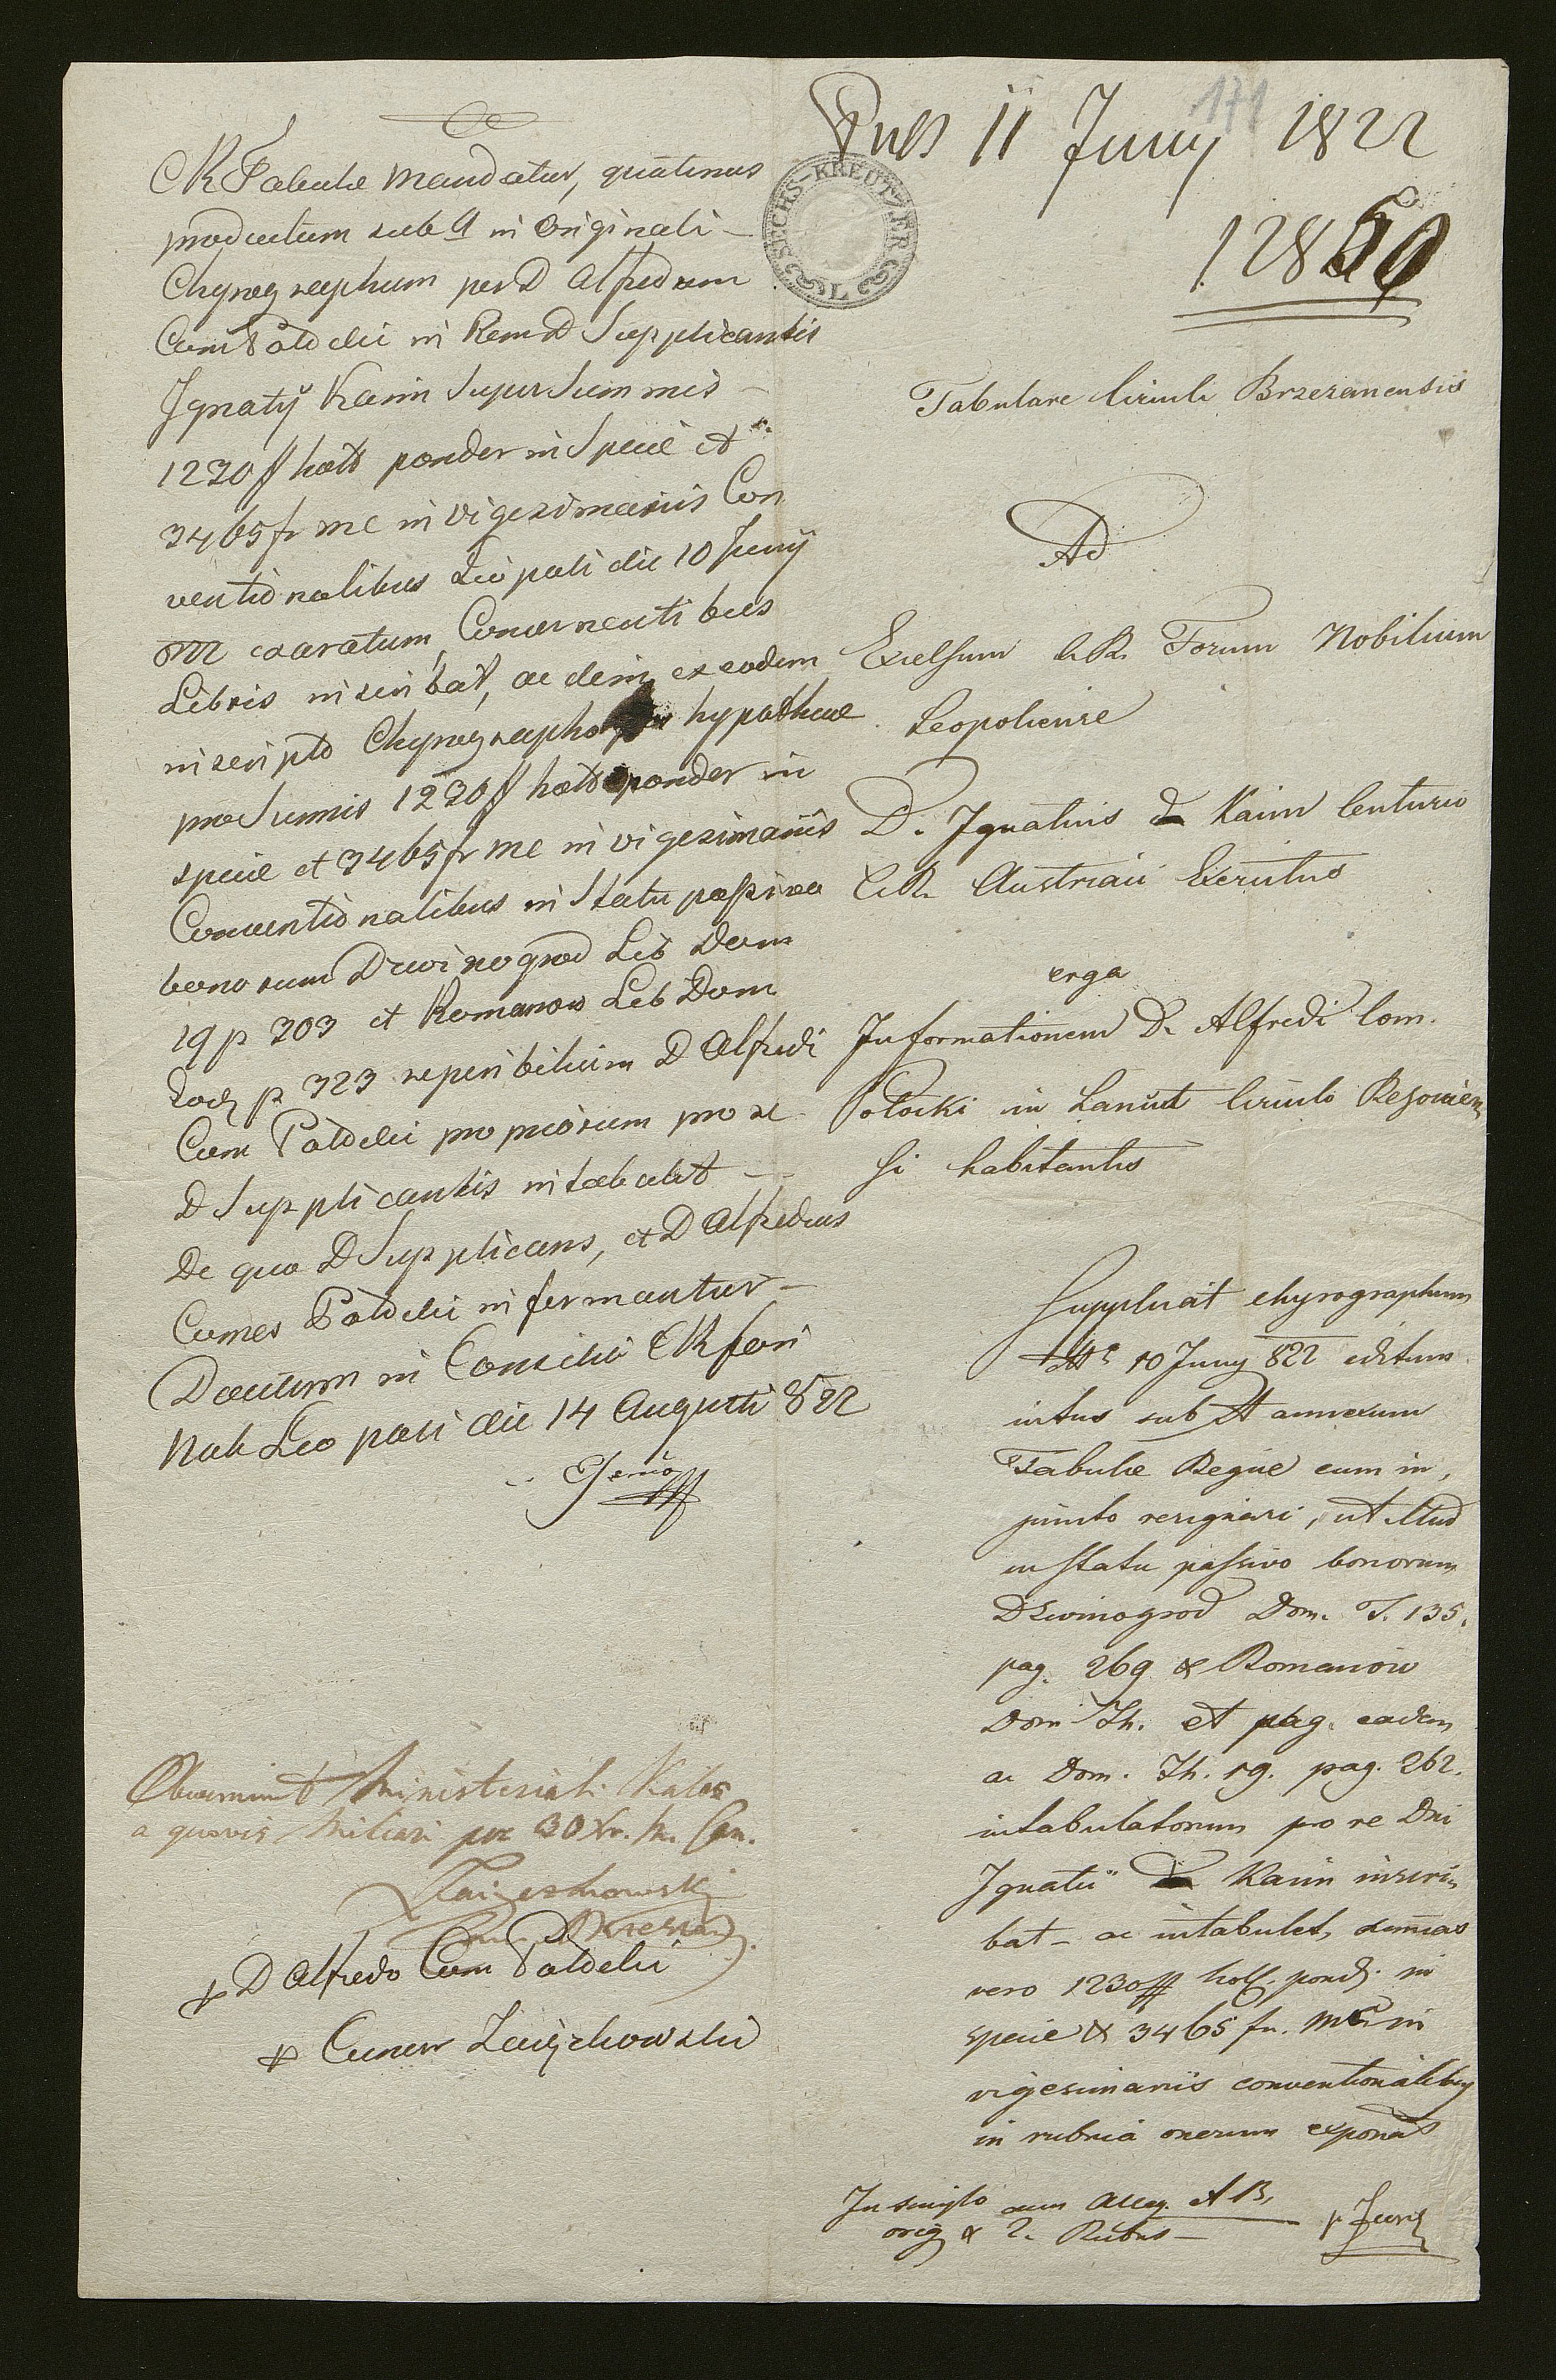 171
11 Juny 1822
12850
SECHS-KREUTZER
Tabulare Circuli Brzezanensis
Ad
Excelsum C.R. Forum Nobilium
Leopoliense
D. Ignatius Kaim Centurio
C.R. Austriaci Exercitus
erga
Informationem D. Alfredi Com.
Potocki in Lancut Circulo Resovien
si habitantis
Supplicat chyrographum
10 Juny 822 editum
intus sub A annexum
Tabulae Regiae cum in,
juncto resignari, ut illud
in statu passivo bonorum
Dzwinogrod Dom. T. 135.
pag. 269 & Romanow
Dom Th. et pag. eadem
ac Dom. Th. 19. pag. 262.
intabulatorum pro re Dni
Ignatii Kaim inscri,
bat - ac intabulet, summas
vero 1230 ff holl. pond. in
specie & 3465 fr. in
vigesimariis conventionalibus
in rubrica onerum exponat
In simplo cum Alleg. A B,
orig & 2. Rubris -
CR Tabulae mandatur, quatenus
productum sub A in Originali -
Chyrographum per D Alfredum
Com Potocki in Rem D Supplicantis
Ignatÿ Kaim super Summis -
1230 ff holl ponder in Specie et
3465 fr mc in vigesimariis Con
ventionalibus Leopoli die 10 Junÿ
exaratum, Concernentibus
Libris inscribat, ac dein ex eodem
inscripto Chyrographo hypothecae
pro Summis 1230 ff holl ponder in
specie et 3465 fr mc in vigesimariis
Conventionalibus in Statu passivo
bonorum Dzwinogrod Lib Dom
19 p 303 et Romanow Lib Dom
p 323 reperibilium D Alfredi
Com Potocki propriorum pro re
D Supplicantis intabulet -
De quo D Supplicans, et D Alfredus
Comes Potocki informantur -
Datum in Consilio CR fori
Nob Leopoli die 14 Augusti 822
Ministeriali
a quovis Miliari per 30 xr. M. Con.
D Alfredo Com Potocki